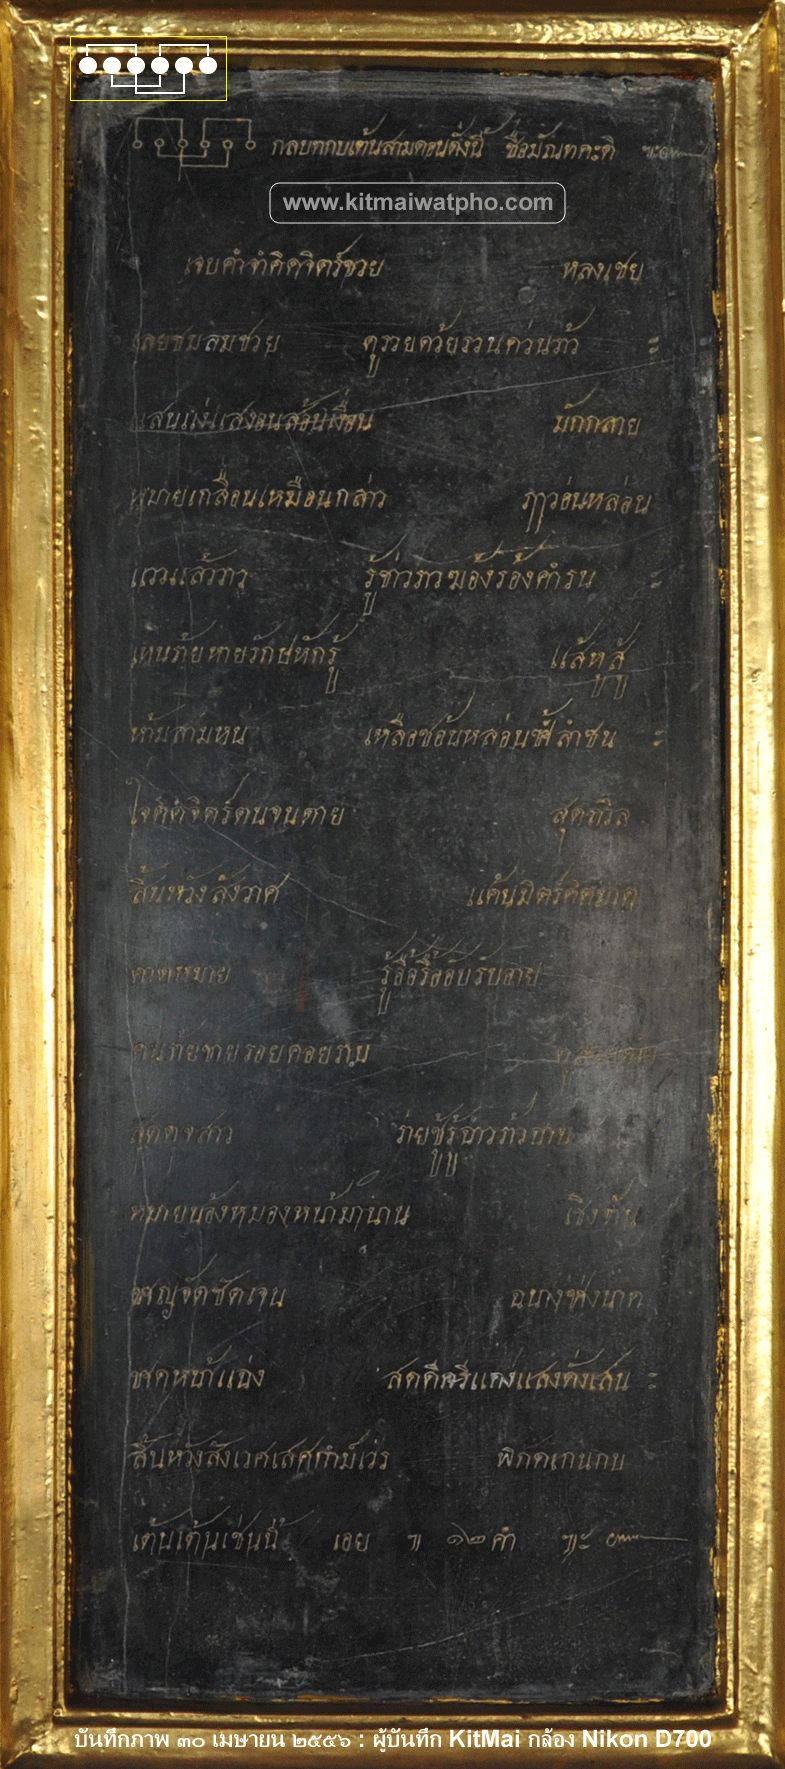 กลบทกบเต้นสามตอนดั่งนี้ ชื่อมัณฑคะติ ฯะ๛
www.kitmaiwatpho.com
เจบคำจำคิดจิตร์ชวย หลงเชย
เลยชมลมชวย ดูรวยด้วยรวนควนรัว ะ
แสนแง่นแสงอนสอ้นเงื่อน มักกลาย
หมายเกลื่อนเหมือนกล่าว ราวอ่นหล่อน
แววแล้วราว รู้ข่าวราวฆ้องร้องคำรน ะ
เหนร้ายหายรักษหักรู้ แส้หูสู้
ห้ามสามหน เหลือซอ้นหล่อนซ้ำลำชน ะ
ใจคิดจิตร์ตนจนตาย สุดถวิล
สิ้นหวังสังวาศ แค้นมิตร์คิดมาด
คาดหมาย รู้อื้อรื้ออบรับอาย
คนร้ายชายรอยคอยราย
สุดตุจสาว ร่ายชู้รู้ฉาวร้าวฉาน
หมายบอ้งหมองหน้ามานาน เชิงหัน
ชาญจัดชัดเจน
ชาดหน้าแฉ่ง สดดีศรีแดงแสงดั่งเสน ะ
สิ้นหวังสังเวศเสศกำม์เวร พิกัดเกนกบ
เต้นเต้นเช่นนี้ เอย ๚ ๑๒ คำ ๚ะ ๛
บันทึกภาพ ๓๐ เมษายน ๒๕๕๖ : ผู้บันทึก KitMai กล้อง Nikon D700